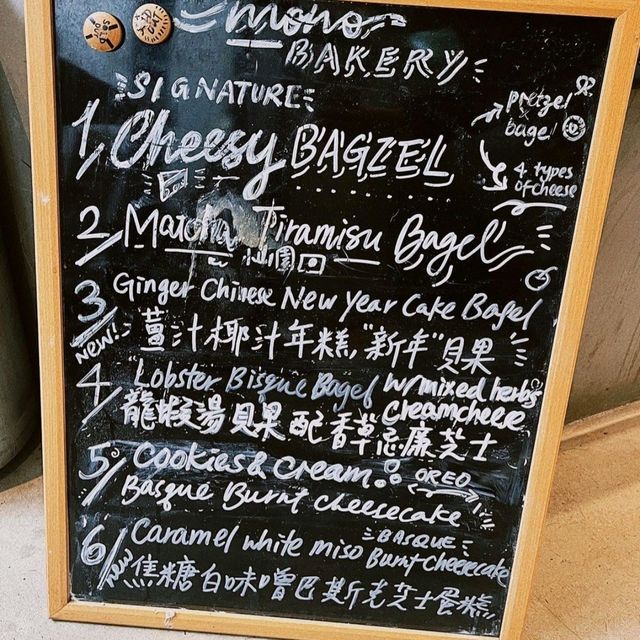 SOLD OUT
SOLD OUT
mono
BAKERY
SIGNATURE
1, Cheesy BAGZEL
pretzel
x
bagel
4 types
of cheese
2, Matcha Tiramisu Bagel
小山園
3 Ginger Chinese New Year Cake Bagel
NEW! 薑汁椰汁年糕,"新年"貝果
4 "Lobster Bisque Bagel w/ mixed herbs
creamcheese
龍蝦湯貝果配香草忌廉芝士
5 Cookies & Cream OREO
Basque Burnt cheesecake
6 Caramel white miso BASQUE
Burnt cheesecake
NEW 焦糖白味噌巴斯克芝士蛋糕